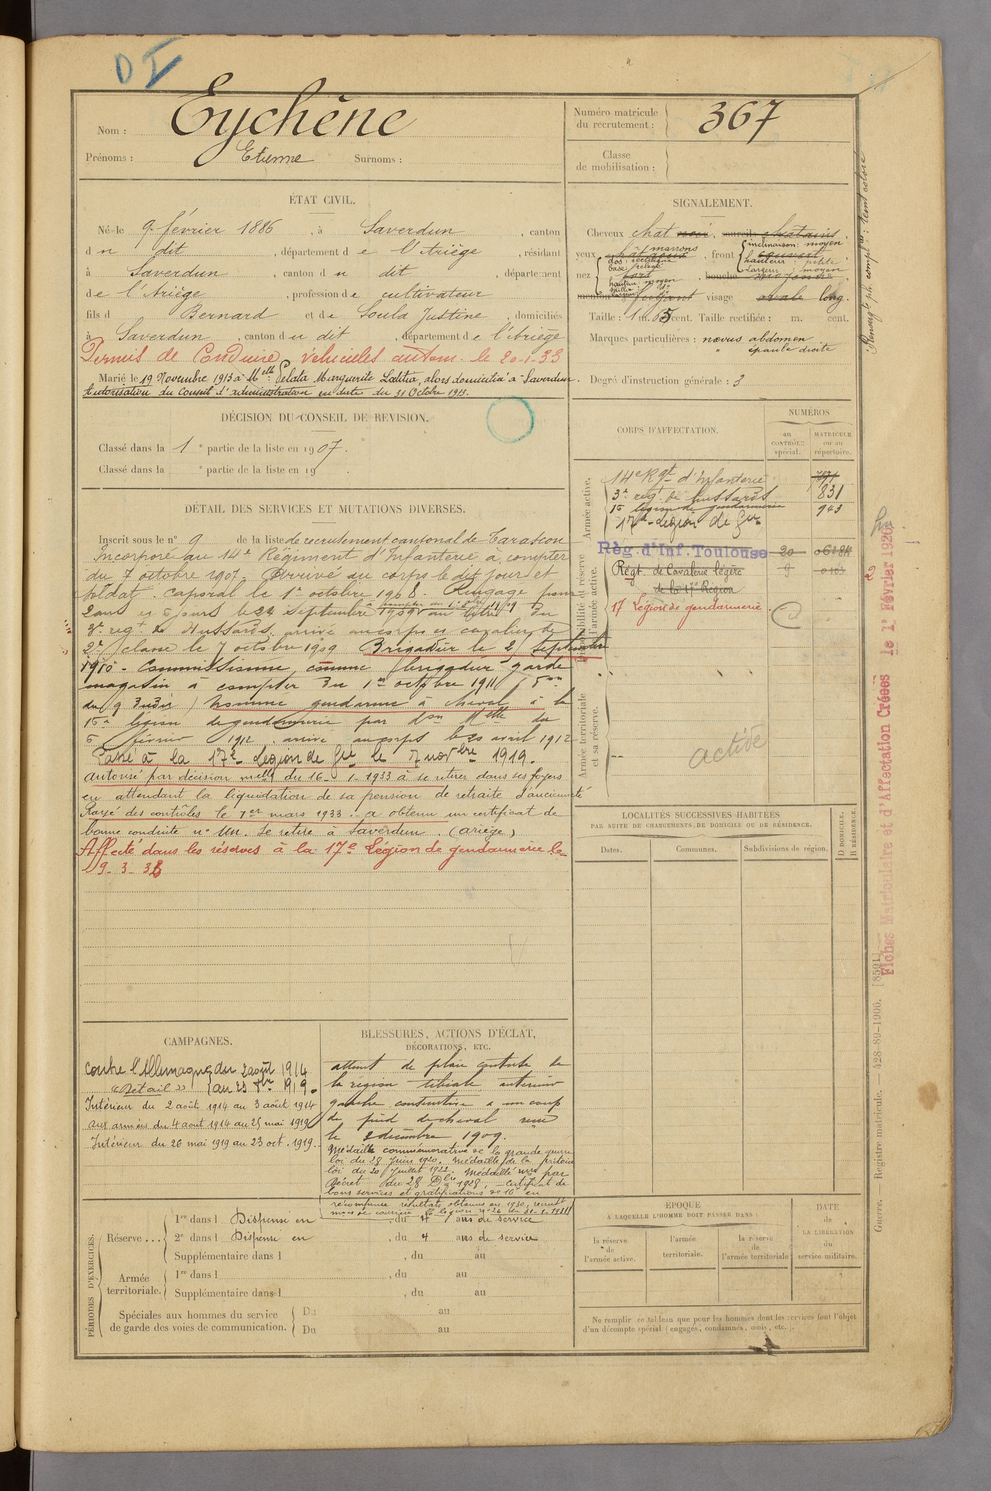 O I
Nom : Eychène
Prénoms : Etienne Surnoms :
Numéro matricule
du recrutement : 367
Classe
de mobilisation :
ÉTAT CIVIL.
Né le 9 février 1886, à Saverdun, canton
d u dit, département d e l'Ariège, résidant
à Saverdun, canton d u dit, département
de l'Ariège, profession de cultivateur
fils d Bernard et de Soula Justine, domiciliés
à Saverdun, canton du dit, département de l'Ariège
Permis de Conduire véhicules autom. le 20-1-33
Marié le 19 Novembre 1913 à Melle Pélata Marguerite Lætitia, alors domiciliée à Saverdun.
Autorisation du Conseil d'administration en date du 31 Octobre 1913.
SIGNALEMENT.
Cheveux chat noir, sourcils châtains,
yeux marrons, front inclinaison : moyen
hauteur : petite
largeur : moyen
nez dos : rectiligne
base : relevé
hauteur : moyen
bouche moyenne,
menton visage ovale long.
Taille : 1 m. 65 cent. Taille rectifiée : m. cent.
Marques particulières : nævus abdomen
" épaule droite
Degré d'instruction générale : 3
Renseigts ph. complres : teint coloré
DÉCISION DU CONSEIL DE REVISION.
Classé dans la 1e partie de la liste en 1907.
Classé dans la e partie de la liste en 19 .
DÉTAIL DES SERVICES ET MUTATIONS DIVERSES.
Inscrit sous le n° 9 de la liste de recrutement cantonal de Tarascon
Incorporé au 14e Régiment d'Infanterie à compter
du 7 octobre 1907. Arrivé au corps le dit jour et
soldat. caporal le 1er octobre 1908. Rengagé pour
2 ans et 5 jours le 24 septembre 1909 au titre du
3e regt de Hussards, arrivé au corps et cavalier de
2e classe le 7 octobre 1909 Brigadier le 21 septembre
1910 - Commissionné, comme brigadier garde
magasin à compter du 1er octobre 1911 (Don
du 9 dudit) Nommé gendarme à cheval à la
15e légion de gendarmerie par don Melle du
5 février 1912, arrivé au corps le 20 avril 1912
Passé à la 17e Légion de Gie le 7 novbre 1919.
autorisé par décision melle du 16-1-1933 à se retirer dans ses foyers
en attendant la liquidation de sa pension de retraite d'ancienneté
Rayé des contrôles le 1er mars 1933 : a obtenu un certificat de
bonne conduite n° un. Se retire à Saverdun. (Ariège)
Affecté dans les réserves à la 17e Légion de gendarmerie le
9-3-33
CORPS D'AFFECTATION.
NUMÉROS
au
CONTRÔLE
spécial.
MATRICULE
ou au
répertoire.
Armée active.
14e Rgt d'Infanterie
3e regt de hussards 831
15 légion de gendarmerie 943
17e Légion de Gie
Disponibilité et réserve
de l'armée active.
Rég. d'Inf. Toulouse 30
Régt. de Cavalerie légère 9
de la 17e Région
17 Légion de gendarmerie
Armée territoriale
et sa réserve.
active
Fiches Matriculaire et d'Affectation Créées le 1r Février 1920
LOCALITÉS SUCCESSIVES HABITÉES
PAR SUITE DE CHANGEMENTS DE DOMICILE OU DE RÉSIDENCE.
Dates.
Communes.
Subdivisions de région.
D DOMICILE.
R RÉSIDENCE
CAMPAGNES.
contre l'Allemagne du 2 août 1914
"Détail" au 23 8bre 1919.
Intérieur du 2 août 1914 au 3 août 1914
aux armées du 4 août 1914 au 25 mai 1919
Intérieur du 26 mai 1919 au 23 oct. 1919.
BLESSURES, ACTIONS D'ÉCLAT,
DÉCORATIONS, ETC.
atteint de plaie contuse de
la région tibiale antérieure
gauche consécutive à un coup
de pied de cheval reçu
le 2 décembre 1909.
Médaille commémorative de la grande guerre
loi du 23 Juin 1920. Médaille de la Victoire
loi du 20 Juillet 1922. Médaillé mre par
Décret du 28 Dbre 1928. - Certificat de
bons services et gratifications n° 16 en
récompense résultats obtenus en 1930, recrut
PÉRIODES D'EXERCICES.
Réserve ....
1re dans l Dispensé en , du 4 ans de service
2e dans l Dispensé en , du 4 ans de service
Supplémentaire dans l , du au
Armée
territoriale.
1re dans l , du au
Supplémentaire dans l , du au
Spéciales aux hommes du service
de garde des voies de communication.
Du au
Du au
ÉPOQUE
À LAQUELLE L'HOMME DOIT PASSER DANS :
la réserve
de
l'armée active.
l'armée
territoriale.
la réserve
de
l'armée territoriale
DATE
de
LA LIBÉRATION
du
service militaire.
Ne remplir ce tableau que pour les hommes dont les services font l'objet
d'un décompte spécial (engagés, condamnés, omis, etc.).
Guerre. — Registre matricule. — 428-89-1906. [8591]